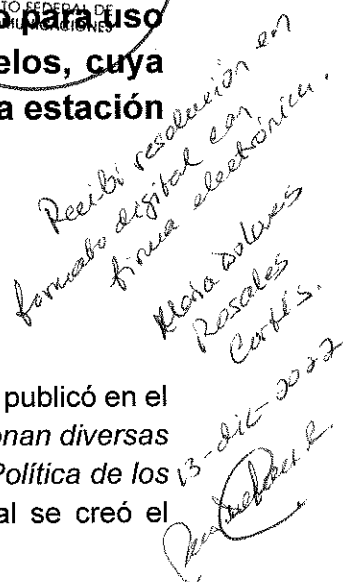 TO FEDERAL DE
UNICACIONES
o para uso
elos, cuya
a estación
Recibí resolución en
formato digital con
firma electrónica.
María Dolores
Rosales
Cortés.
13-dic-2022
publicó en el
onan diversas
Política de los
al se creó el